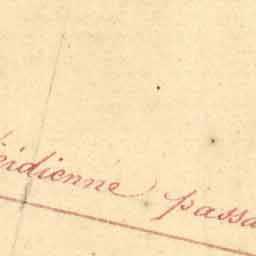 eidienne passa